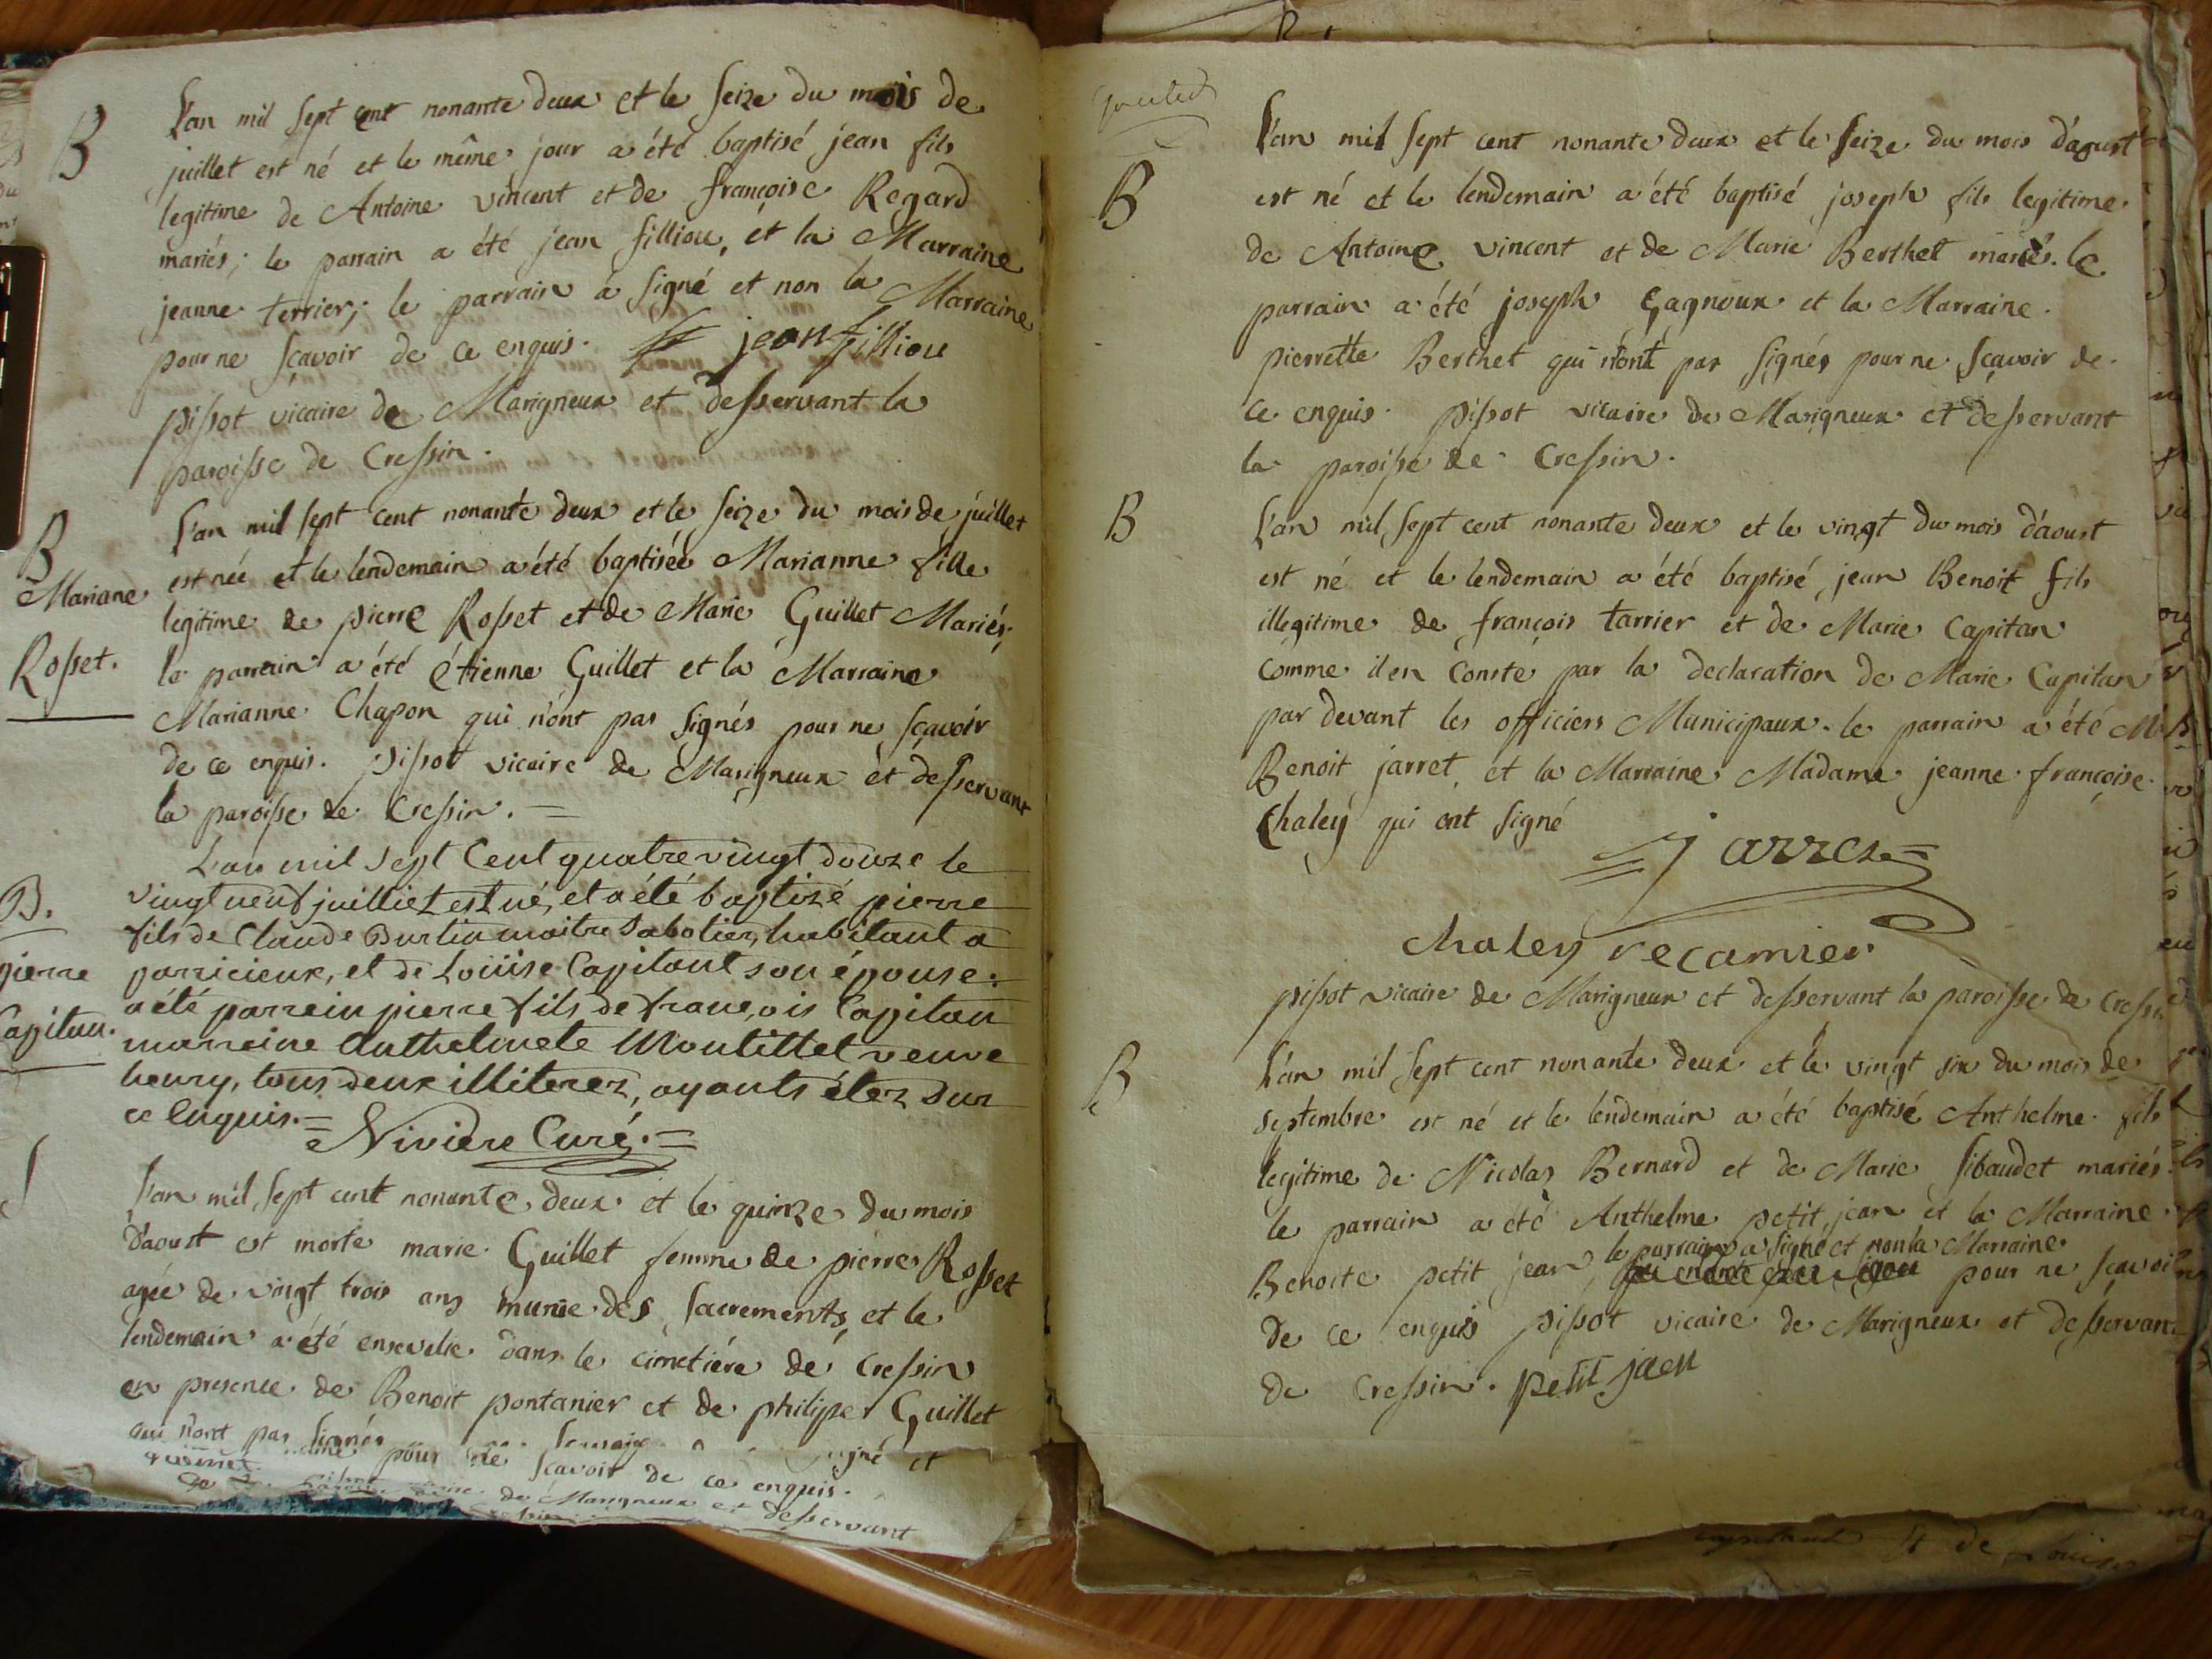 B
L'an mil sept cent nonante deux et le seize du mois de
juillet est né et le même jour a été baptisé jean fils
legitime de Antoine vincent et de françoise Regard
mariés; le parrain a été jean filliou, et la Marraine
jeanne terrier; le parrain a signé et non la Marraine
pour ne sçavoir de ce enquis. jean filliou
pissot vicaire de Marigneux et desservant la
paroisse de Cressin.
B
Mariane
Rosset.
L'an mil sept cent nonante deux et le seize du mois de juillet
est née et le lendemain a été baptisée Marianne fille
legitime de pierre Rosset et de Marie Guillet Mariés;
le parrain a été étienne Guillet et la Marraine
Marianne Chapon qui n'ont pas signés pour ne sçavoir
de ce enquis. pissot vicaire de Marigneux et desservant
la paroisse de Cressin. =
B.
pierre
Capitan.
L'an mil sept Cent quatre vingt douze le
vingt neuf juilliet est né, et a été baptizé pierre
fils de Claude Burtin maitre Sabotier, habitant a
parricieux, et de Loüise Capitant son épouse:
a été parrein pierre fils de françois Capitan
marreine Anthelmete Moutillet veuve
henry, tous deux illiterez, ayants étez Sur
ce Enquis. = Nivière Curé. =
S
L'an mil sept cent nonante deux et le quinze du mois
d'aoust est morte marie Guillet femme de pierre Rosset
agée de vingt trois ans munie des sacrements, et le
lendemain a été ensevelie dans le cimetiére de Cressin
en presence de Benoit pontanier et de philiper Guillet
qui n'ont pas signés
pour ne sçavoir de ce enquis.
de Marigneux et desservant
B
L'an mil sept cent nonante deux et le seize du mois d'agust
est né et le lendemain a été baptisé joseph fils legitime
de Antoine vincent et de Marie Berthet mariés. le
parrain a été joseph Gagnoux et la Marraine
pierrette Berthet qui n'ont pas signés pour ne sçavoir de
ce enquis. pissot vicaire de Marigneux et desservant
la paroisse de Cressin.
B
L'an mil sept cent nonante deux et le vingt du mois d'aoust
est né et le lendemain a été baptisé jean Benoit fils
illegitime de françois tarrier et de Marie Capitan
comme il en Conste par la declaration de Marie Capitan
par devant les officiers Municipaux. le parrain a été Mr
Benoit jarret, et la Marraine Madame jeanne françoise
Chaley qui ont signé
jarret
chaley recamier
pissot vicaire de Marigneux et desservant la paroisse de Cressin
B
L'an mil sept cent nonante deux et le vingt six du mois de
septembre est né et le lendemain a été baptisé Anthelme fils
legitime de Nicolas Bernard et de Marie Sibaudet mariés
le parrain a été Anthelme petit jean et la Marraine
le parrain a signé et non la Marraine
Benoite petit jean, pour ne sçavoir
de ce enquis pissot vicaire de Marigneux et desservant
de Cressin. petit jaen